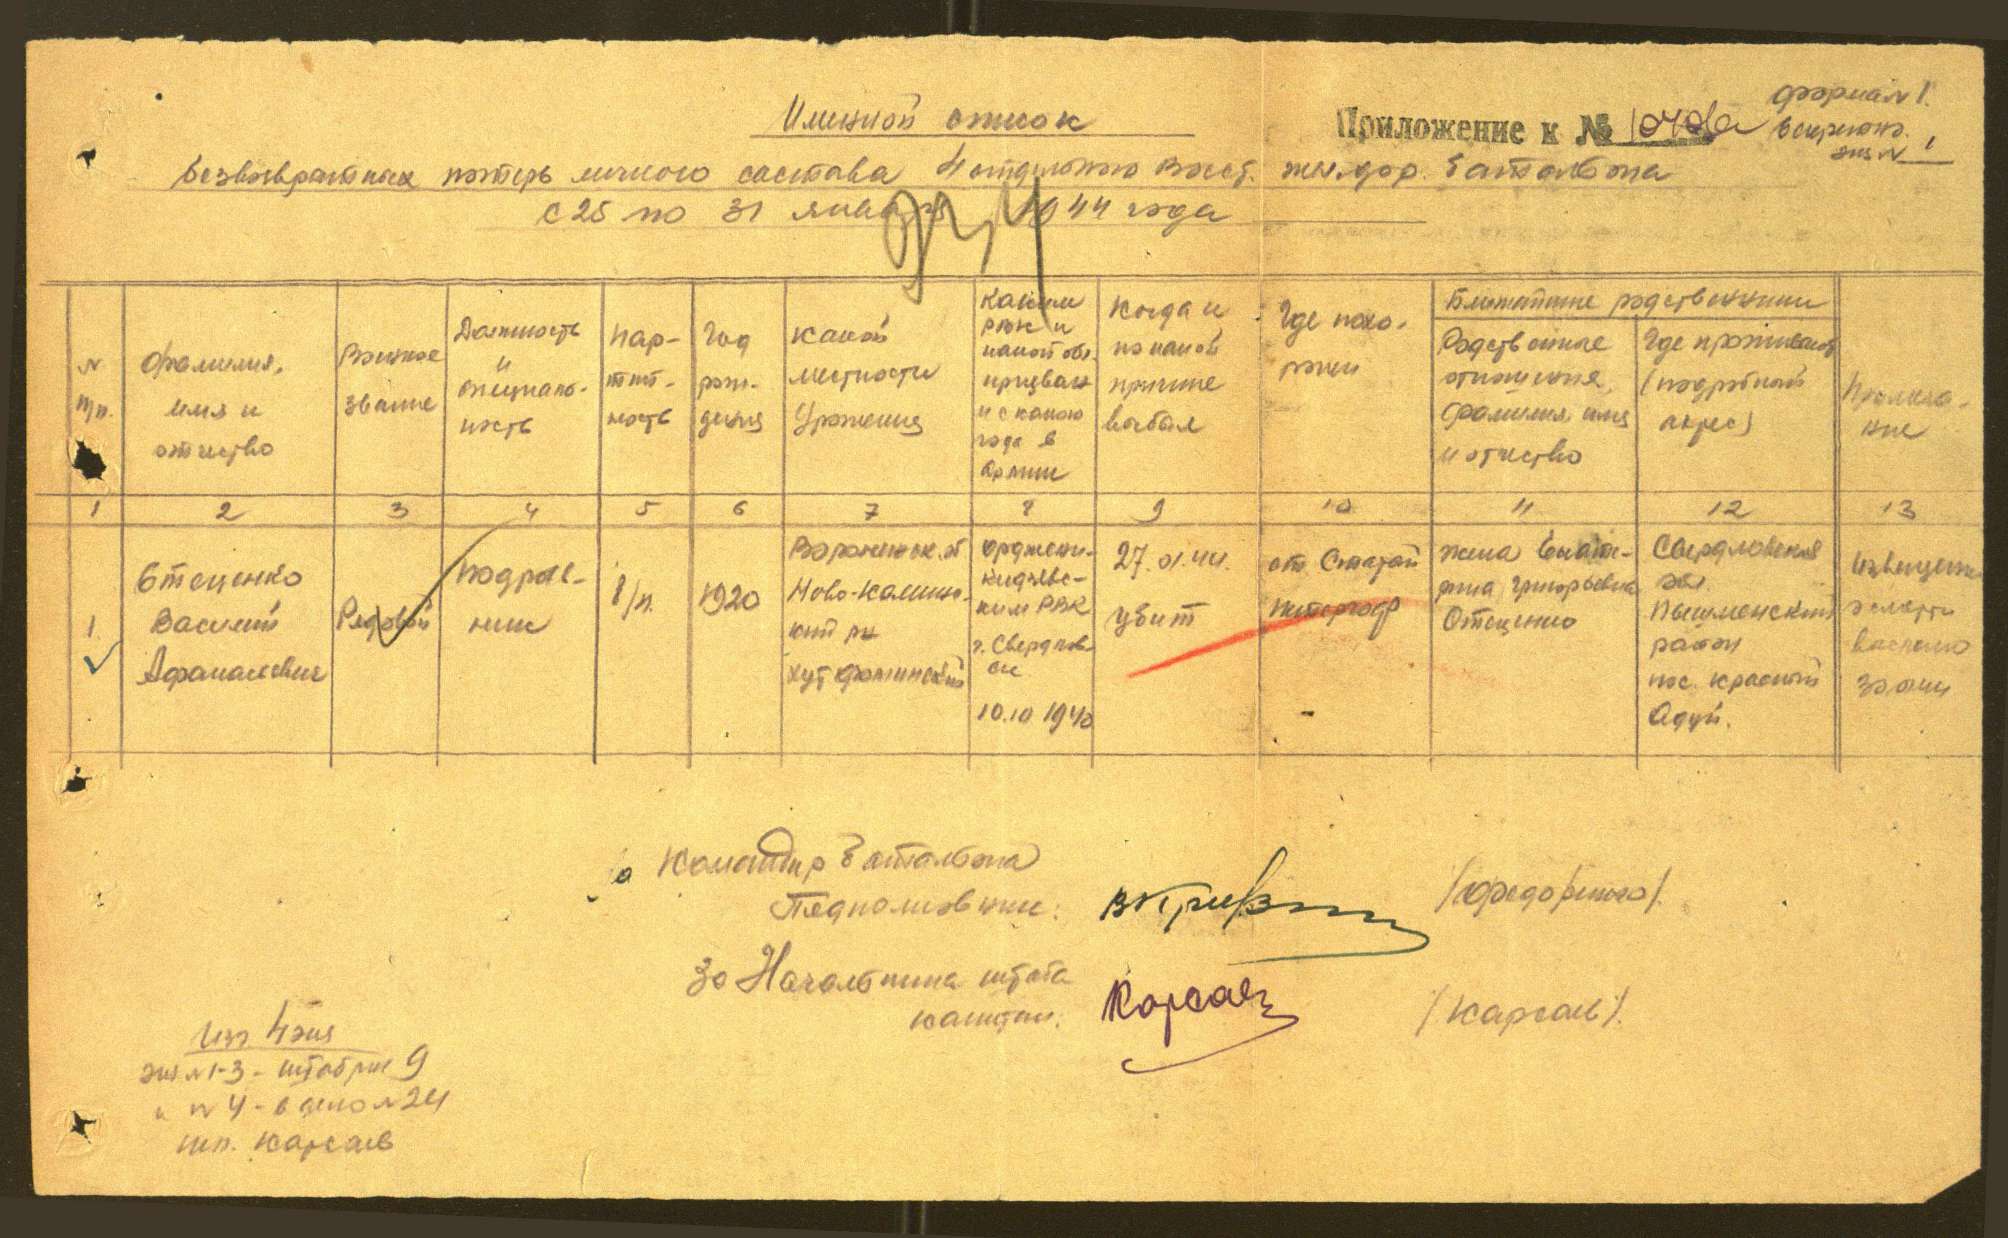 форма №1.
Именной список
Приложение к №
экз №1
безвозвратных потерь личного состава 4 отдельного восст. жел.дор. батальона
с 25 по 31 января 1944 года
№ п/п.
Фамилия, имя и отчество
Воинское звание
Должность и специальность
Пар-тий-ность
Год рож-дения
Какой местности уроженец
Каким РВК и какой обл. призван и с какого года в армии
Когда и по какой причине выбыл
Где похо-ронен
Ближайшие родственники
Родственные отношения, фамилия, имя и отчество
Где проживают (подробный адрес)
Примеча-ние
1 2 3 4 5 6 7 8 9 10 11 12 13
1.
Стеценко
Василий
Афанасьевич
Рядовой
подрыв-
ник
б/п.
1920
Воронежск. об
Ново-Калитвен-
кий рн
хут
Орджони-
кидзевс-
ким РВК
г. Свердлов-
ск
10.10 1940
27.01.44.
убит
ст Старый
Петергоф
жена
Григорьевна
Стеценко
Свердловская
обл.
Пышменский
район
пос. Красный
Адуй.
извещение
о смерти
выслано
Командир батальона
Подполковник:
За Начальника штаба
капитан.
Карсаев
/Карсаев/.
Исп. 4 экз
экз №1-3 - штабриг 9
" №4 - в дело №24
исп. Карсаев